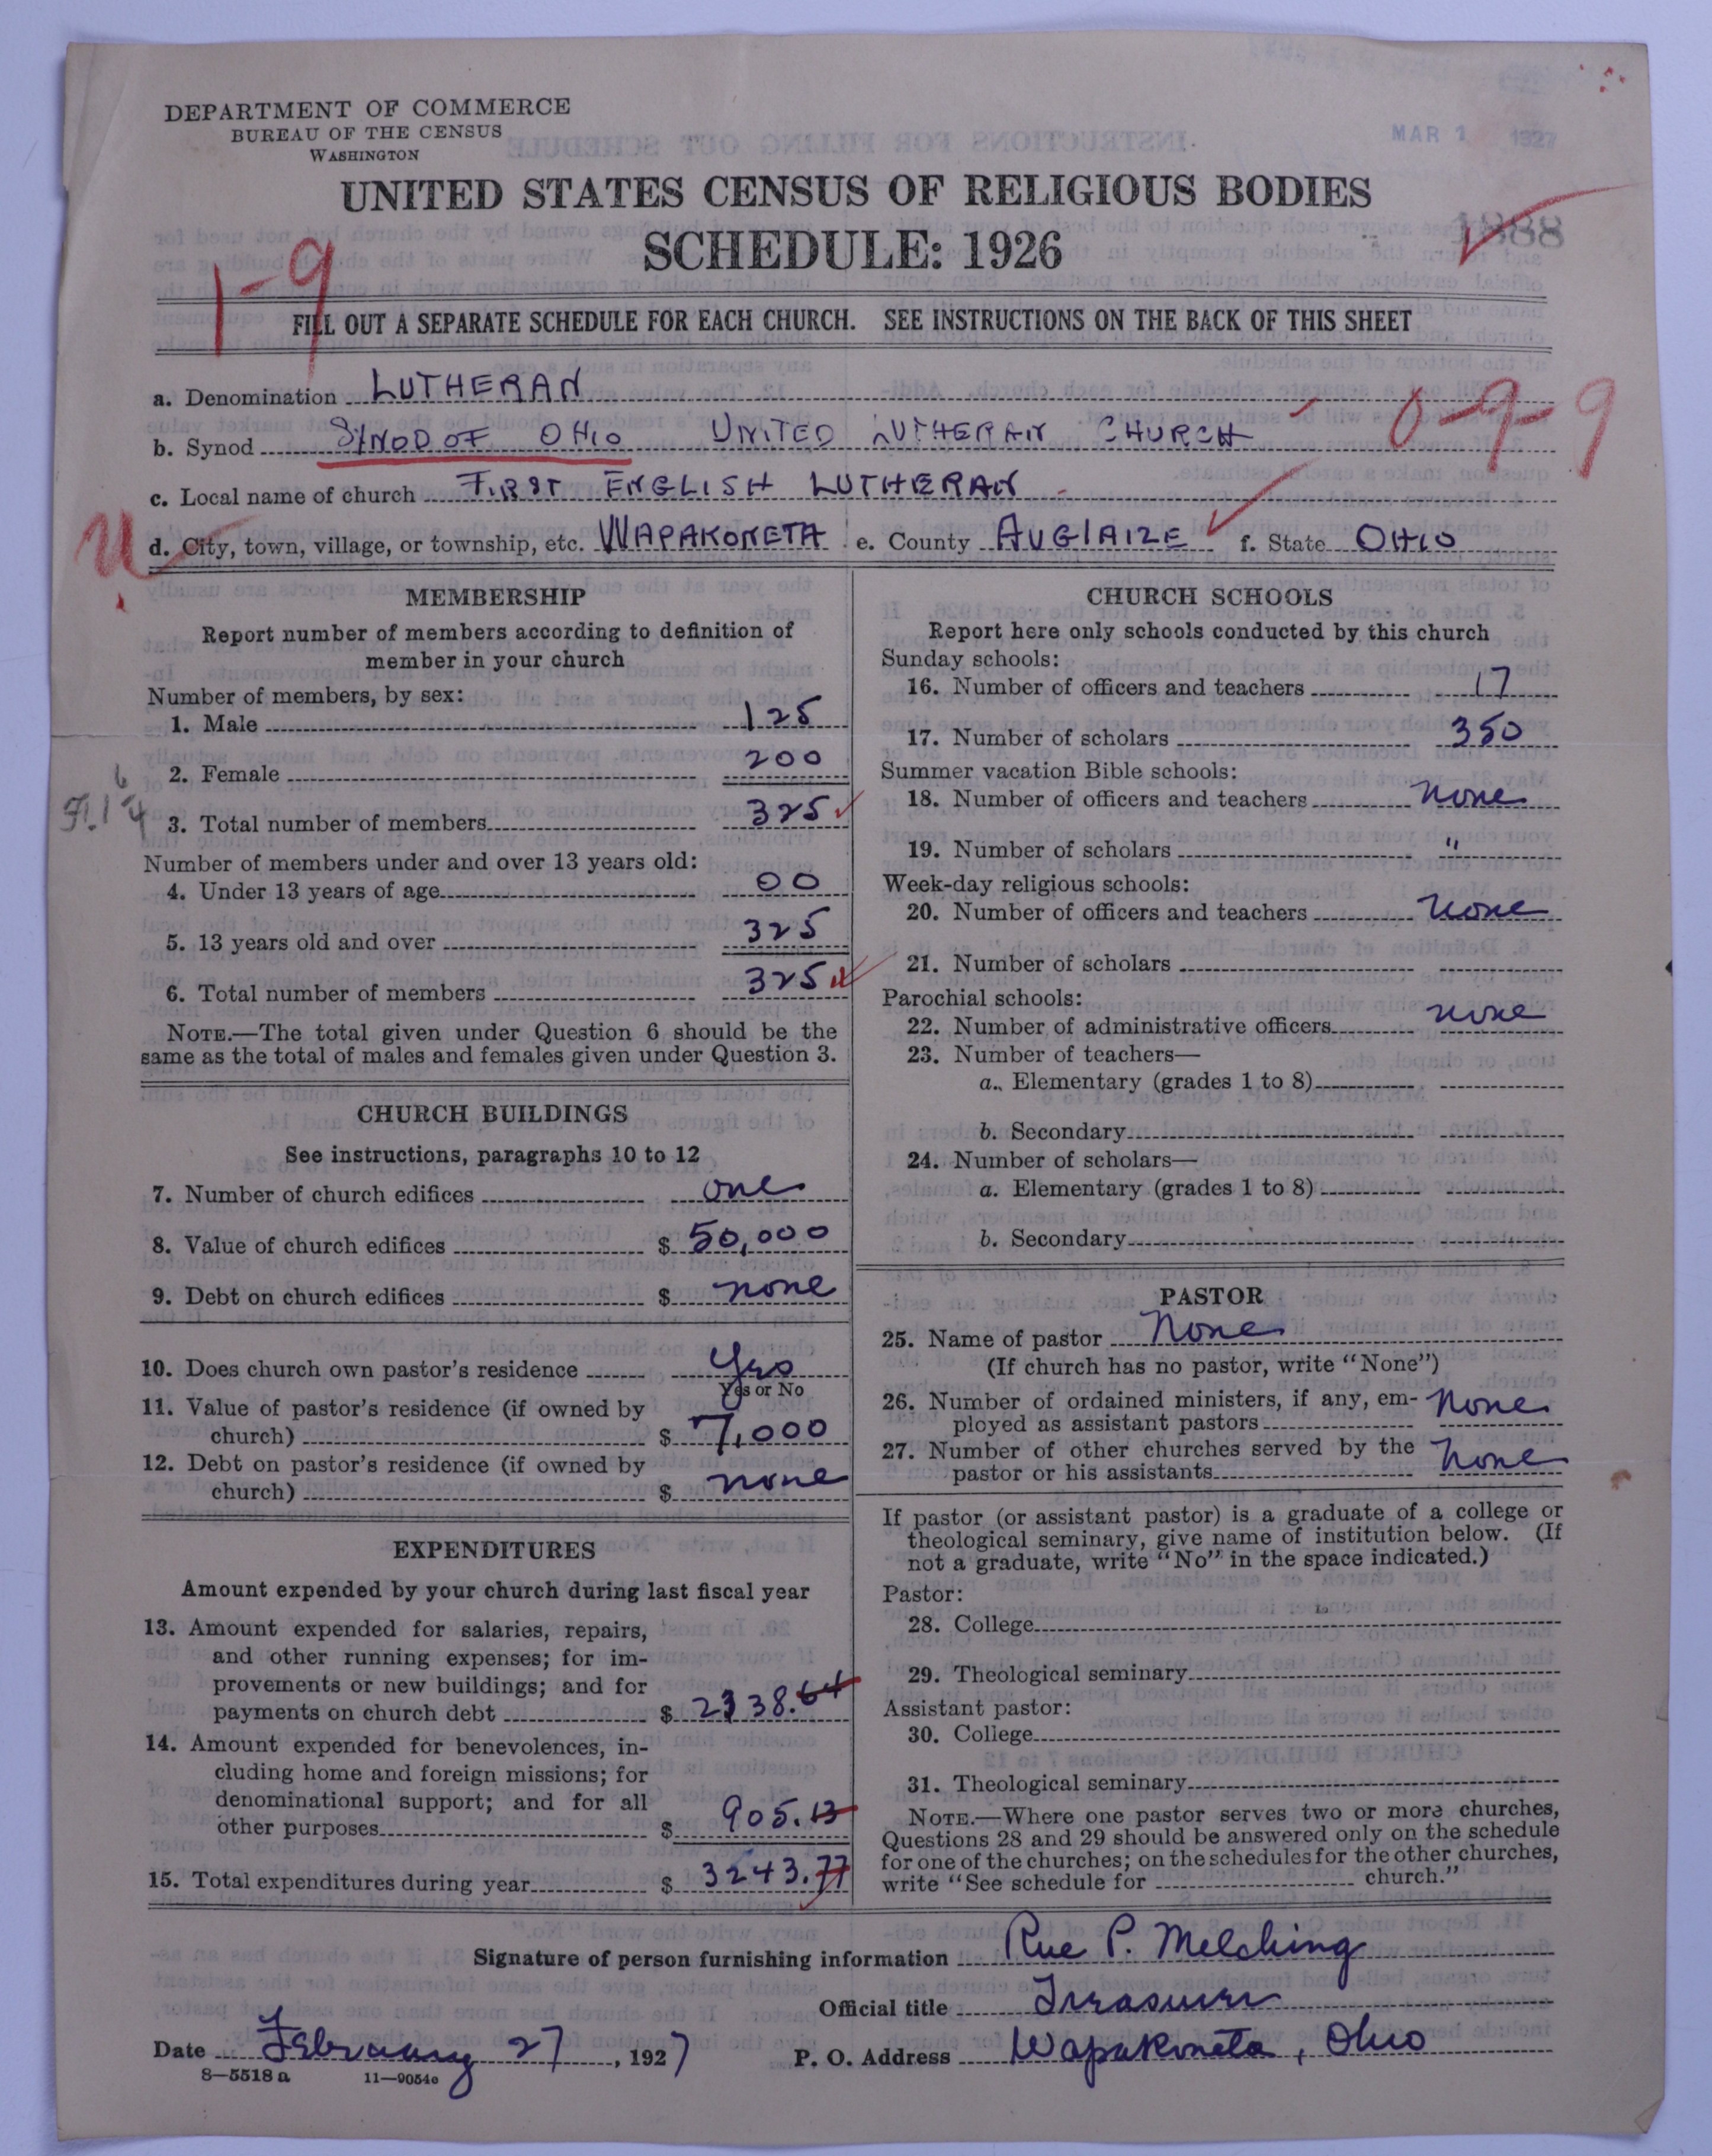 DEPARTMENT OF COMMERCE
BUREAU OF THE CENSUS
WASHINGTON
MAR 1 1927
UNITED STATES CENSUS OF RELIGIOUS BODIES
SCHEDULE: 1926
1888
1-9
FILL OUT A SEPARATE SCHEDULE FOR EACH CHURCH. SEE INSTRUCTIONS ON THE BACK OF THIS SHEET
a. Denomination LUTHERAN
b. Synod SYNOD OF OHIO UNITED LUTHERAN CHURCH
0-9-9
c. Local name of church FIRST ENGLISH LUTHERAN
d. City, town, village, or township, etc. WAPAKONETA e. County AUGLAIZE f. State OHIO
MEMBERSHIP
Report number of members according to definition of
member in your church
Number of members, by sex:
1. Male 125
2. Female 200
3. Total number of members 325
Number of members under and over 13 years old:
4. Under 13 years of age 00
5. 13 years old and over 325
6. Total number of members 325
NOTE.—The total given under Question 6 should be the
same as the total of males and females given under Question 3.
CHURCH BUILDINGS
See instructions, paragraphs 10 to 12
7. Number of church edifices one
8. Value of church edifices $ 50,000
9. Debt on church edifices $ none
10. Does church own pastor's residence Yes
Yes or No
11. Value of pastor's residence (if owned by
church) $ 7,000
12. Debt on pastor's residence (if owned by
church) $ none
EXPENDITURES
Amount expended by your church during last fiscal year
13. Amount expended for salaries, repairs,
and other running expenses; for im-
provements or new buildings; and for
payments on church debt $ 2338.64
14. Amount expended for benevolences, in-
cluding home and foreign missions; for
denominational support; and for all
other purposes $ 905.13
15. Total expenditures during year $ 3243.77
CHURCH SCHOOLS
Report here only schools conducted by this church
Sunday schools:
16. Number of officers and teachers 17
17. Number of scholars 350
Summer vacation Bible schools:
18. Number of officers and teachers none
19. Number of scholars "
Week-day religious schools:
20. Number of officers and teachers none
21. Number of scholars
Parochial schools:
22. Number of administrative officers none
23. Number of teachers—
a. Elementary (grades 1 to 8)
b. Secondary
24. Number of scholars—
a. Elementary (grades 1 to 8)
b. Secondary
PASTOR
25. Name of pastor None
(If church has no pastor, write "None")
26. Number of ordained ministers, if any, em-
ployed as assistant pastors None
27. Number of other churches served by the
pastor or his assistants None
If pastor (or assistant pastor) is a graduate of a college or
theological seminary, give name of institution below. (If
not a graduate, write "No" in the space indicated.)
Pastor:
28. College
29. Theological seminary
Assistant pastor:
30. College
31. Theological seminary
NOTE.—Where one pastor serves two or more churches,
Questions 28 and 29 should be answered only on the schedule
for one of the churches; on the schedules for the other churches,
write "See schedule for church."
Signature of person furnishing information Rue P. Melching
Official title Treasurer
Date February 27, 1927 P. O. Address Wapakoneta, Ohio
8—5518 a 11—9054c